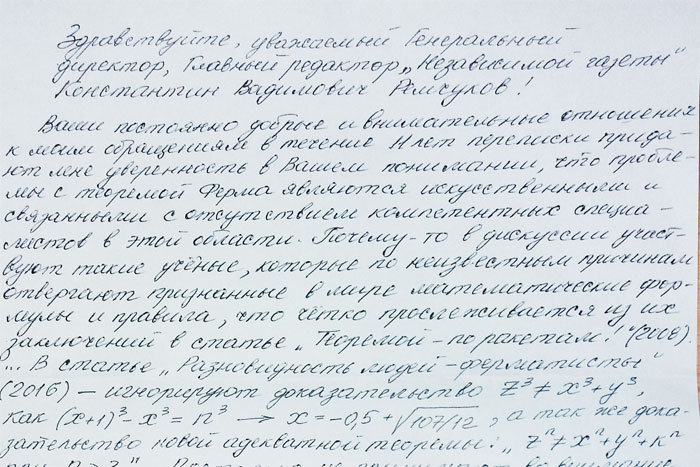 Здравствуйте, уважаемый Генеральный
директор, Главный редактор „Независимой газеты"
Константин Вадимович Ремчуков!
Ваши постоянно добрые и внимательные отношения
к моим обращениям в течение 11 лет переписки прида-
ют мне уверенность в Вашем понимании, что пробле-
мы с теоремой Ферма являются искусственными и
связанными с отсутствием компетентных специа-
листов в этой области. Почему-то в дискуссии участ-
вуют такие учёные, которые по неизвестным причинам
отвергают признанные в мире математические фор-
мулы и правила, что чётко прослеживается из их
заключений в статье „Теоремой - по ракетам!"
... В статье „Разновидность людей - ферматисты"
(2016) — игнорируют доказательство Z³ ≠ X³+Y³,
как (x+1)³ - x³ = n³ → x = -0,5 + √107/12, а так же дока-
зательство новой адекватной теоремы: „Zⁿ ≠ Xⁿ+Yⁿ+Kⁿ